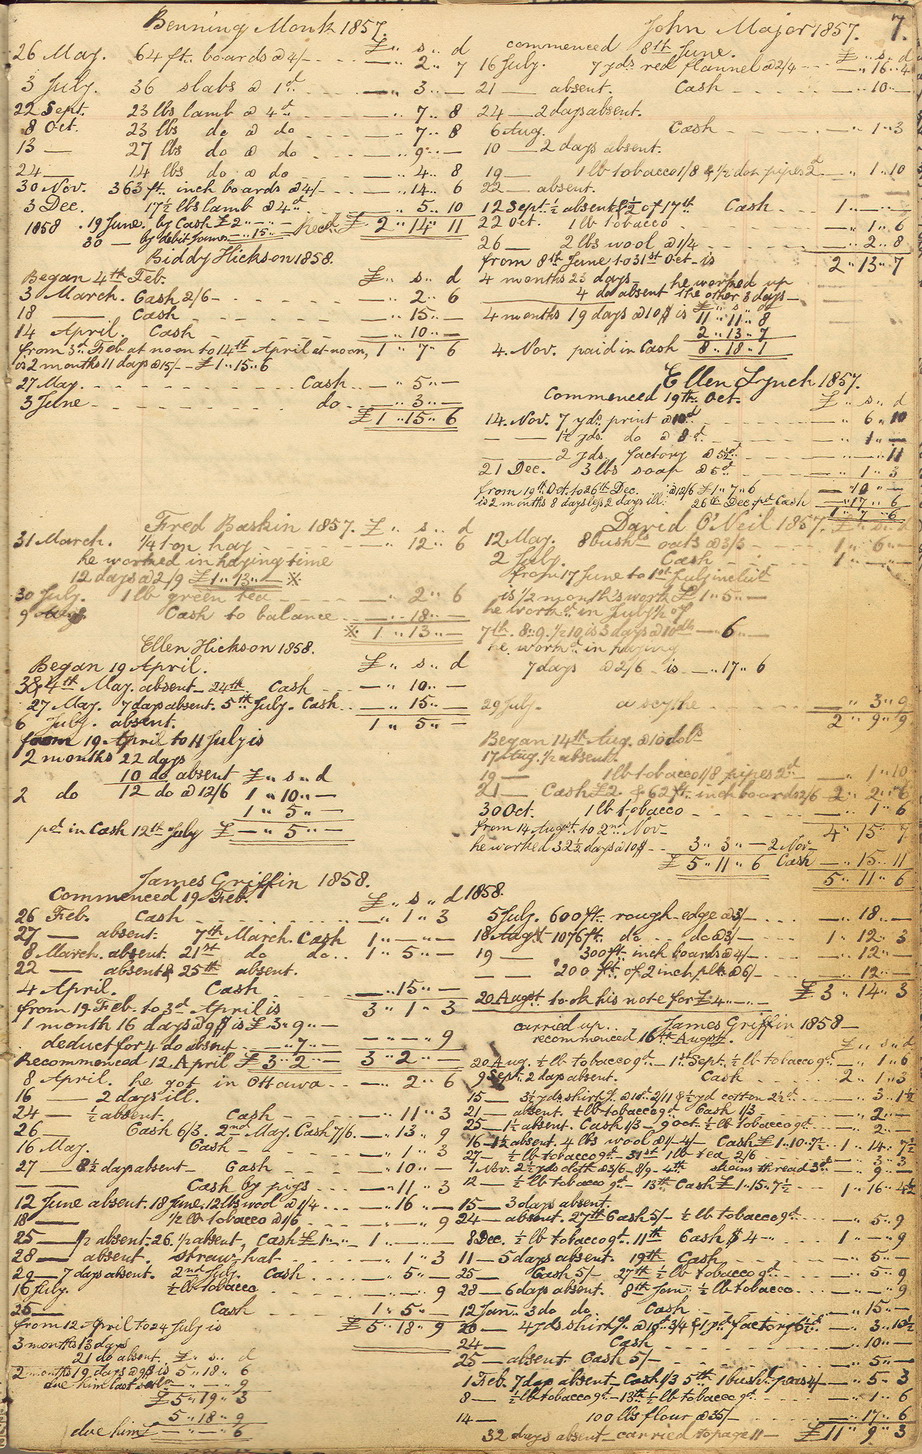 7.
Benning Monk 1857.
£ " s " d
26 May. 64 ft. boards @ 4/- - - - — " 2 " 7
3 July. 36 slabs @ 1d - - - — " 3 " —
22 Sept. 23 lbs lamb @ 4d - - - 7 " 8
8 Oct. 23 lbs do @ do - - - — " 7 " 8
13 — 27 lbs do @ do - - - — " 9 " —
24 — 14 lbs do @ do - - - — " 4 " 8
30 Nov. 363 ft. inch boards @ 4/- - - — " 14 " 6
3 Dec. 17½ lbs lamb @ 4d - - - " 5 " 10
1858 . 19 June. by Cash £ 2 " — " — £ 2 " 14 " 11
30 — by — 15 " —
Biddy Hickson 1858.
Began 4th Feb. £ " s " d
3 March. Cash 2/6 - - - — " 2 " 6
18 — Cash - - - — " 15 " —
14 April. Cash - - - — " 10 " —
from 3rd Feb at noon to 14th April at noon, 1 " 7 " 6
is 2 months 11 days @ 15/- - £ 1 " 15 " 6
27 May - - - Cash - - — " 5 " —
3 June - - - do - - — " 3 " —
£ 1 " 15 " 6
Fred Baskin 1857. £ " s " d
31 March. ¼ ton hay - - - — " 12 " 6
he worked in haying time
12 days @ 2/9 £ 1 " 13 " — ※
30 July. 1 lb green tea - - - — " 2 " 6
9 Cash to balance - - — " 18 " —
※ 1 " 13 " —
Ellen Hickson 1858.
Began 19 April. £ " s " d
3 & 4th May. absent - 24th Cash - - — " 10 " —
27 May. 7 days absent. 5th July. Cash - - — " 15 " —
6 July. absent. 1 " 5 " —
from 19 April to 11 July is
2 months 22 days
10 do absent £ " s " d
2 do 12 do @ 12/6 1 " 10 " —
1 " 5 " —
pd in Cash 12th July £ — " 5 " —
James Griffin 1858.
Commenced 19 Feb. £ " s " d
26 Feb. Cash - - - — " 1 " 3
27 — absent. 7th March. Cash 1 " — " —
8 March. absent. 21st do do - - 1 " 5 " —
22 — absent & 25th absent.
4 April. Cash - - - — " 15 " —
from 19 Feb. to 3rd April is 3 " 1 " 3
1 month 16 days @ 9$ is £ 3 " 9 " —
deduct for 4 do absent - - " 7 " — — " — " 9
Recommenced 12 April £ 3 " 2 " — 3 " 2 " —
8 April. he got in Ottawa - - - — " 2 " 6
16 — 2 days ill.
24 — ½ absent. Cash - - - — " 11 " 3
26 — Cash 6/3. 2nd May. Cash 7/6 - — " 13 " 9
16 May. Cash - - - — " 1 " 3
27 — 8½ days absent - Cash - - — " 10 " —
— Cash by pigs - - - — " 11 " 3
12 June absent. 18 June. 12 lbs wool @ 1/4 - - — " 16 " —
18 — ½ lb tobacco @ 1/6 - - - " 9
25 — ½ absent. 26. ½ absent, Cash £ 1 " — " - 1 " — " —
28 — absent. straw hat - - - — " 1 " 3
29 — 7 days absent. 2nd July. Cash - - — " 5 " —
16 July. ½ lb tobacco - - - — " — " 9
25 — Cash - - - 1 " 5 " —
from 12 April to 24 July is £ 5 " 18 " 9
3 months 13 days
21 do absent. £ " s " d
2 months 19 days @ 9$ is 5 " 18 " 6
due him last " — " 9
£ 5 " 19 " 3
5 " 18 " 9
due him £ — " — " 6
John Major 1857.
commenced 8th June. £ " s " d
16 July. 7 yds red flannel @ 2/4 - - — " 16 " 4
21 — absent. Cash - - - — " 10 " —
24 — 2 days absent.
6 Aug. Cash - - - — " 1 " 3
10 — 2 days absent.
19 — 1 lb tobacco 1/8 & ½ doz pipes 2d — " 1 " 10
22 — absent.
12 Sept. ½ absent & ½ of 17th Cash 1 " — " —
22 Oct. 1 lb tobacco - - - — " 1 " 6
26 — 2 lbs wool @ 1/4 - - - — " 2 " 8
from 8th June to 31st Oct. is 2 " 13 " 7
4 months 23 days - he worked up
4 do absent the other 3 days —
4 months 19 days @ 10$ is 11 " 11 " 8
2 " 13 " 7
4 Nov. paid in Cash 8 " 18 " 1
Ellen Lynch 1857.
Commenced 19th Oct. £ " s " d
14 Nov. 7 yds. print @ 10d - - - — " 6 " 10
— — 1½ yds. do @ 8d - - - — " 1 " —
— — 2 yds. factory @ 5½d - - - — " — " 11
21 Dec. 3 lbs soap @ 5d - - - — " 1 " 3
from 19th Oct. to 26th Dec. @ 12/6 £ 1 " 7 " 6 — " 10 " —
is 2 months 8 days less 2 days ill. 26th Dec. pd Cash — " 17 " 6
1 " 7 " 6
David O'Neil 1857. £ " s " d
12 May. 8 bushls oats @ 3/3 - - - 1 " 6 " —
2 July. Cash - - - 1 " — " —
from 17 June to 1st July inclusit
is ½ months worth £ 1 " 5 " —
he workd in July ½ of
7th. 8 " 9. ½ 10, is 3 days @ — " 6 " —
he workd in haying
7 days @ 2/6 is — " 17 " 6
29 July. a scythe - - - — " 3 " 9
2 " 9 " 9
Began 14th Aug. @ 10 dols
17 Aug. ½ absent.
19 — 1 lb tobacco 1/8 pipes 2d - - — " 1 " 10
21 — Cash £ 2 & 62 ft. inch boards 2/6 2 " 2 " 6
30 Oct. 1 lb tobacco - - - — " 1 " 6
from 14 Augst to 2nd Nov. 4 " 15 " 7
he worked 32½ days @ 10$ - - 3 " 3 " — 2 Nov.
£ 5 " 11 " 6 Cash — " 15 " 11
5 " 11 " 6
1858.
5 July. 600 ft. rough edge @ 3/- - - — " 18 " —
18 Augst. 1076 ft. do do @ 3/- - - 1 " 12 " 3
19 — 300 ft. inch boards @ 4/- - - — " 12 " —
— — 200 ft. of 2 inch plk @ 6/- - - — " 12 " —
20 Augst. took his note for £ 4 " — " — £ 3 " 14 " 3
carried up. James Griffin 1858 —
recommenced 16th Augst. £ " s " d
20 Aug. ½ lb tobacco 9d - 1st Sept. ½ lb tobacco 9d - — " 1 " 6
9 Sept. 2 days absent. Cash - - 2 " 1 " 3
15 — 3½ yds shirtg. @ 10d 2/11 & ½ yd cotton 2½d - — " 3 " 1½
21 — absent. ½ lb tobacco 9d Cash 1/3 - — " 2 " —
25 — 1½ absent. Cash 1/3 - 9 Oct. ½ lb tobacco 9d - — " 2 " —
16 - 1½ absent. 4 lbs wool @ 1/- 4/- Cash £ 1 " 10 " 7½ - 1 " 14 " 7½
27 — ½ lb tobacco 9d - 31st 1 lb tea, 2/6 - — " 3 " 3
1 Nov. 2½ yds cloth @ 3/6 - 8/9 - 4th skeins thread 3d - — " 9 " —
12 — ½ lb tobacco 9d - 13th Cash £ 1 " 15 " 7½ - 1 " 16 " 4½
15 — 3 days absent.
24 — absent. 27th Cash 5/- ½ lb tobacco 9d - - — " 5 " 9
8 Dec. ½ lb tobacco 9d. 11th Cash $ 4 - - 1 " — " 9
11 — 5 days absent. 19th Cash - - - — " 5 " —
25 — Cash 5/- 27th ½ lb tobacco 9d - - — " 5 " 9
28 — 6 days absent. 8th Jan. ½ lb tobacco - - — " — " 9
12 Jan. 3 do do. Cash - - - — " 15 " —
20 — 4 yds shirtg. @ 10d 3/4 & 1 yd factory 6½d - — " 3 " 10½
24 — Cash - - - — " 10 " —
25 — absent Cash 5/- - - - — " 5 " —
1 Feb. 7 days absent - Cash 1/3 5th 1 bushl peas 4/- - — " 5 " 3
8 — ½ lb tobacco 9d - 13th ½ lb tobacco 9d - - — " 1 " 6
14 — 100 lbs flour @ 35/- - - - — " 17 " 6
32 days absent - carried to page 11 — £ 11 " 9 " 3